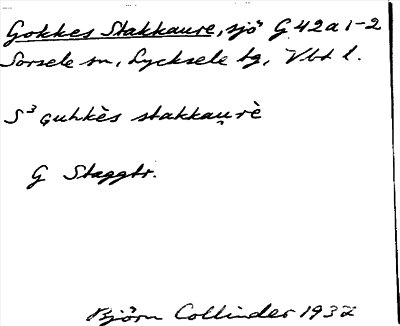 Gokkes Stakkaure, sjö G 42 a 1-2
Sorsele sn, Lycksele tg, Vbt l.
S³ guhkès stakkau̯rè
G Staggtr.
Björn Collinder 1932